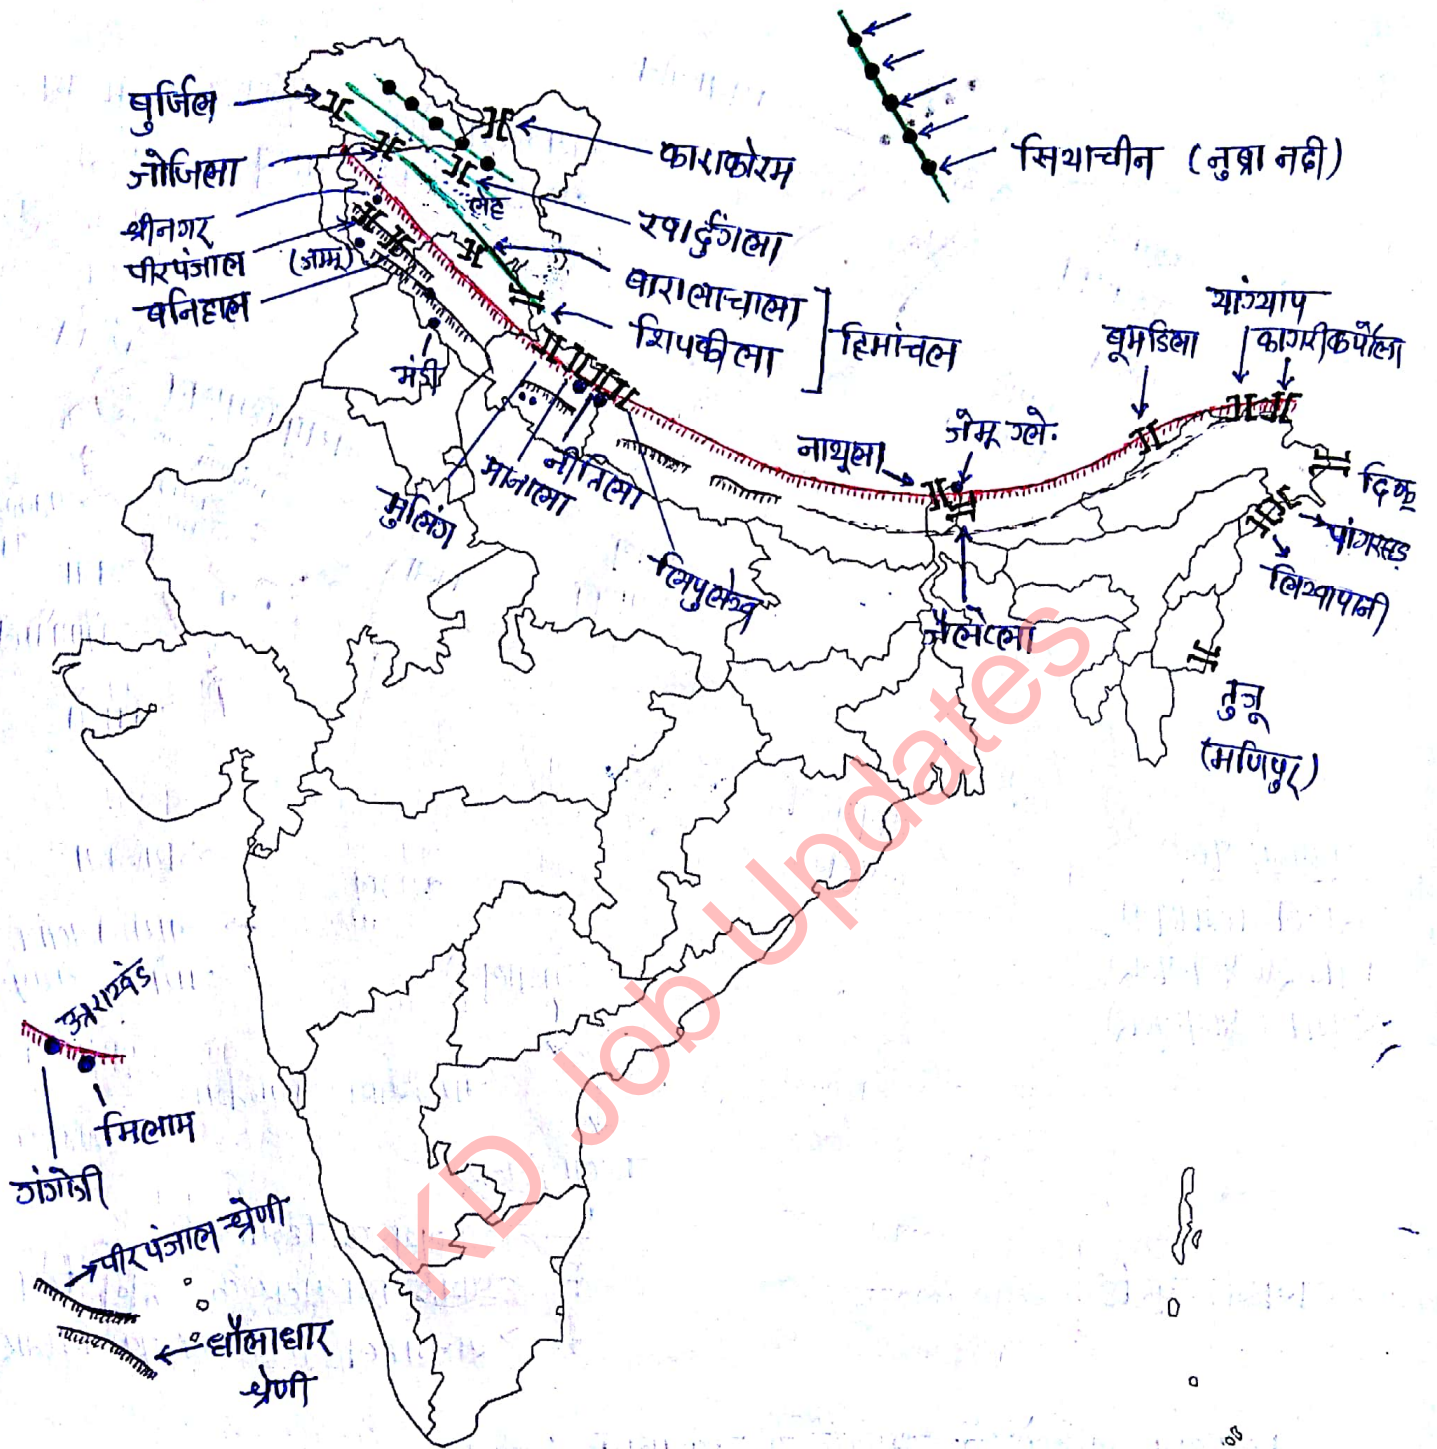 बुर्जिल
जोजिला
श्रीनगर
पीरपंजाल
(जम्मू)
बनिहाल
काराकोरम
लेह
खार्दुंगला
बारालाचाला
शिपकीला
हिमांचल
सियाचीन (नुब्रा नदी)
मंडी
मुलिंग
मानाला
नीतिला
लिपुलेख
नाथूला
जेमू ग्ले.
जैलेप्ला
बूमडिला
यांग्याप
कागरीकर्पोला
दिफू
पांगसाड़
लिखापानी
तुजू
(मणिपुर)
उत्तराखंड
मिलाम
गंगोत्री
पीरपंजाल श्रेणी
धौलाधार
श्रेणी
KD Job Updates